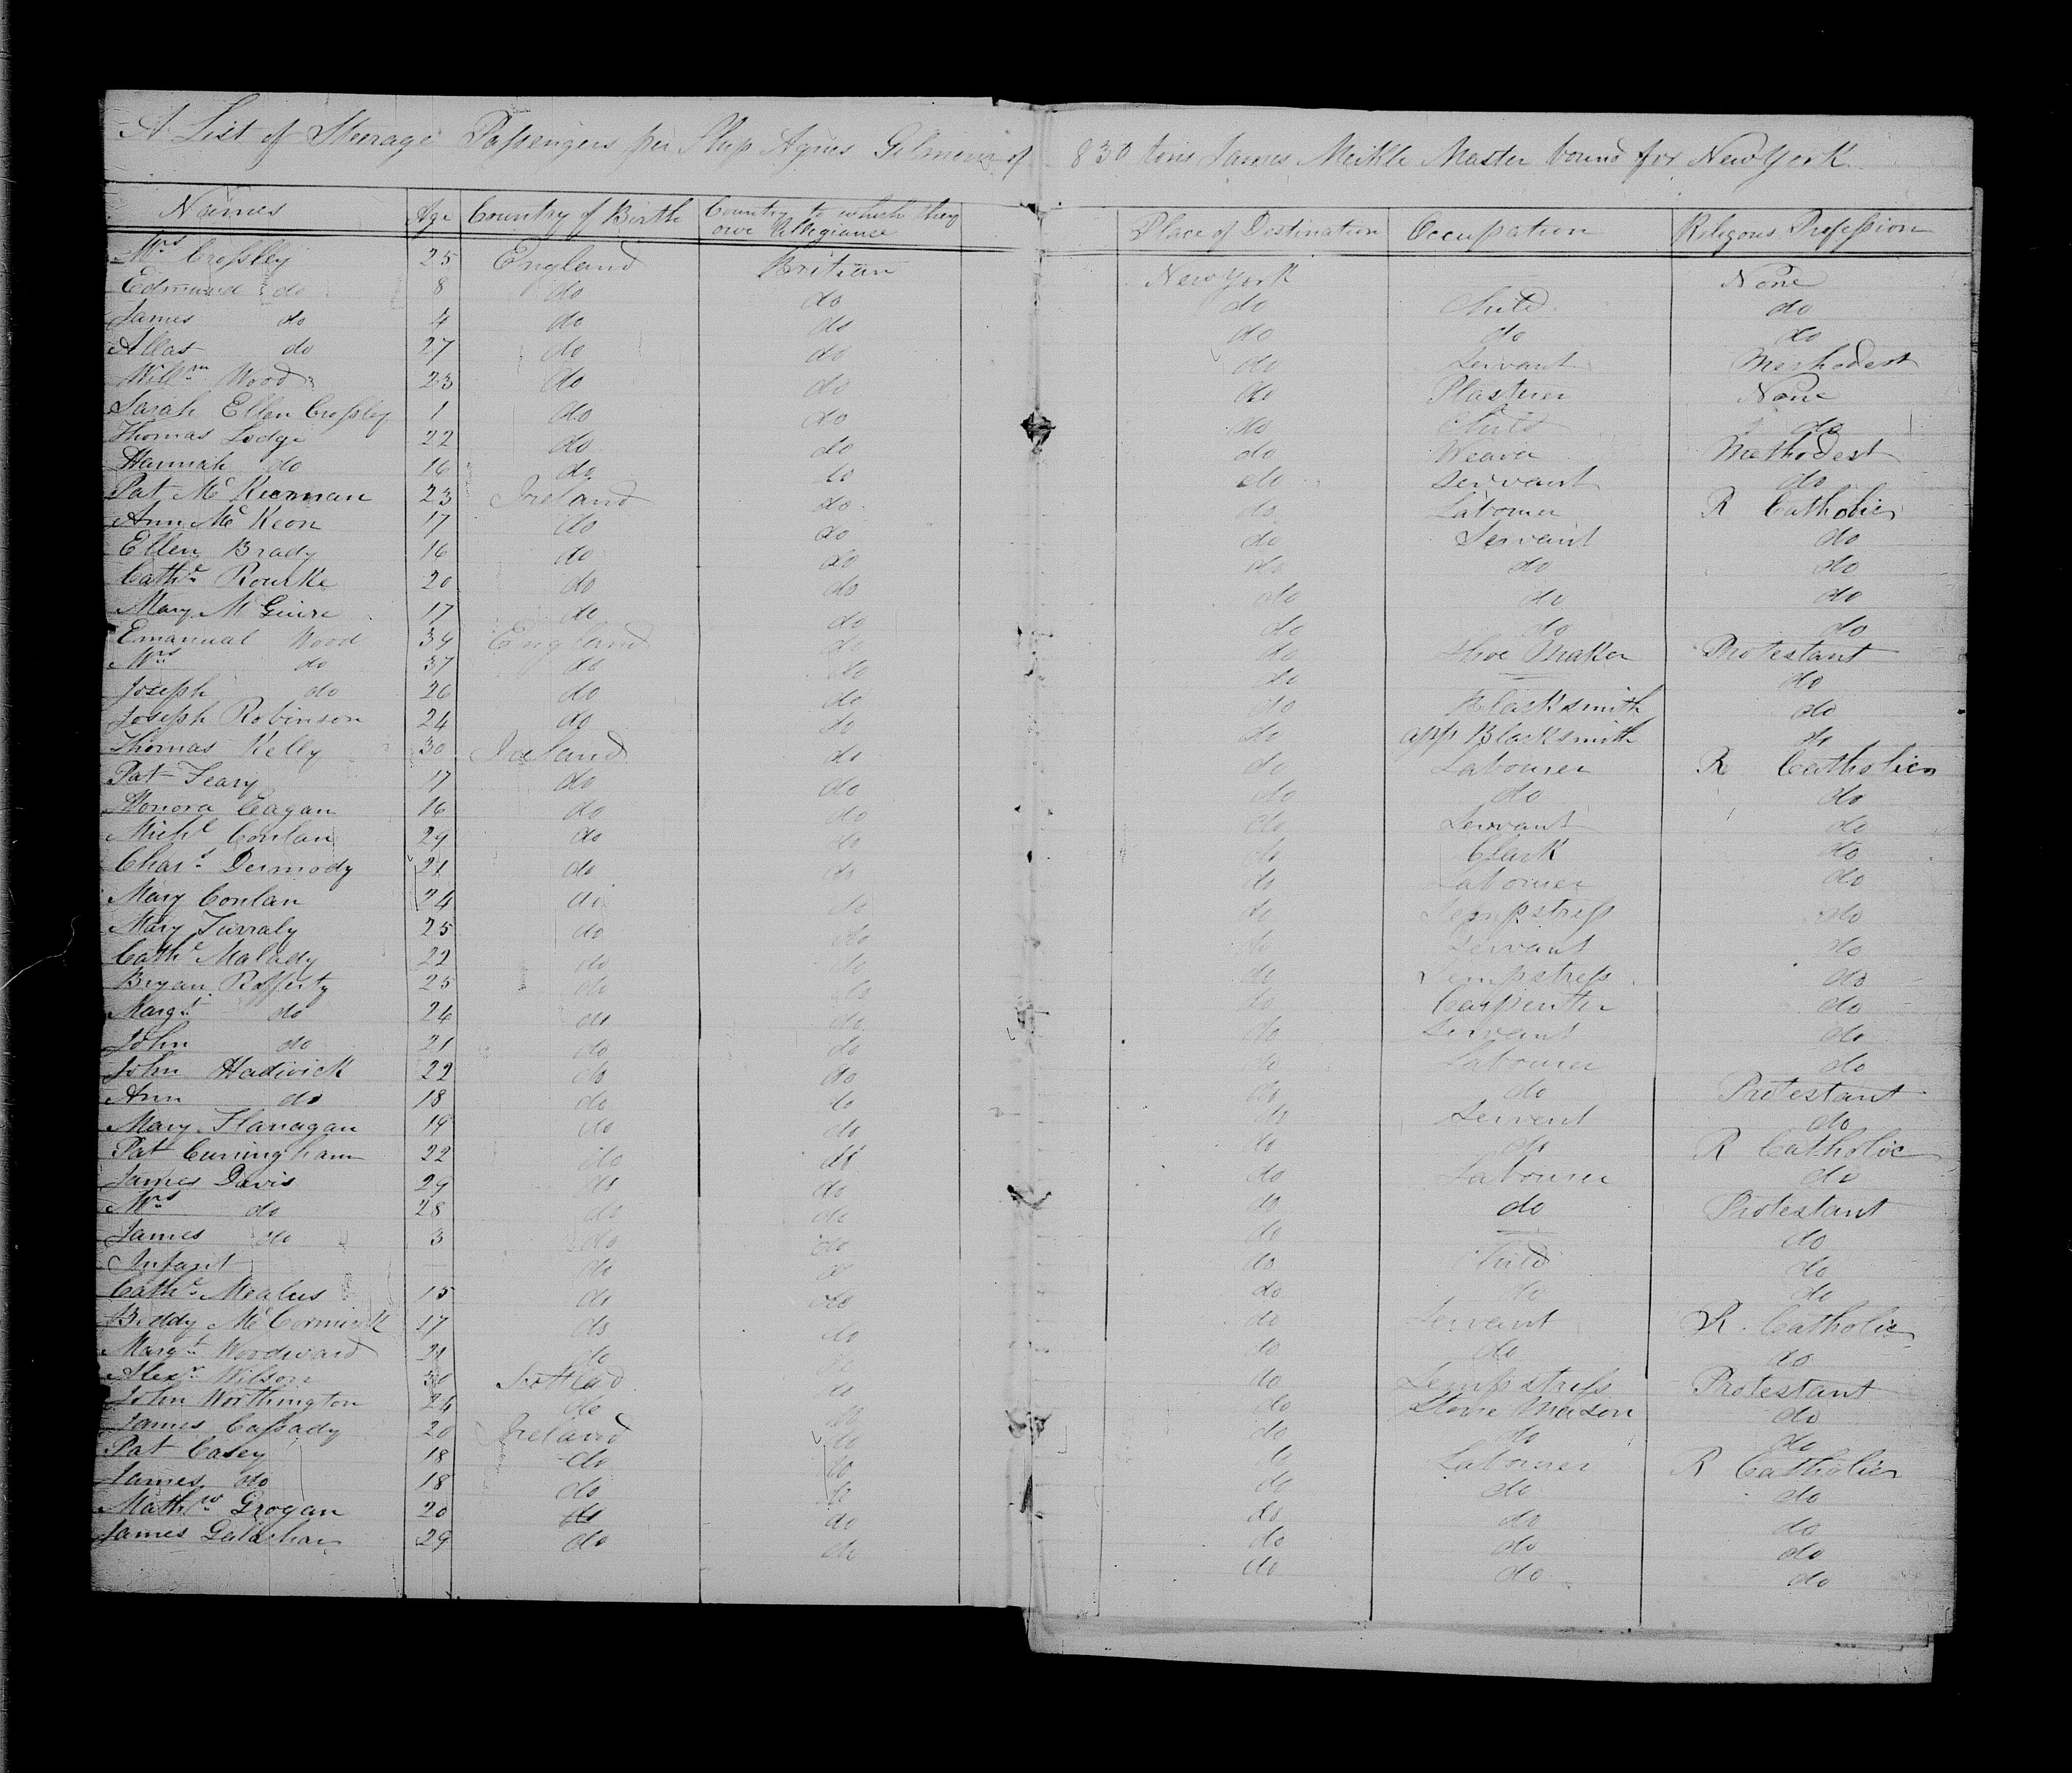 A List of Steerage Passengers per Ship Agnes Gilmour of 830 tons James Meikle Master bound for New York
Names Age Country of Birth Country to which they owe Allegianse Place of Destination Occupation Religous Profession
Mrs Crossley 25 England Britian New York None
Edmund do 8 do do do Child do
James do 4 do do do do do
Allas do 27 do do do Servant Methodest
Willm Wood 23 do do do Plasterer None
Sarah Ellen Crossley 1 do do do Child do
Thomas Lodge 22 do do do Weaver Methodest
Hannah do 16 do do do Servant do
Pat Mc Kiernan 23 Ireland do do Labourer R Catholic
Ann Mc Keon 17 do do do Servant do
Ellen Brady 16 do do do do do
Cathe Rourke 20 do do do do do
Mary M Guire 17 do do do do do
Emanual Wood 34 England do do Shoe Maker Protestant
Mrs do 37 do do do — do
Joseph do 26 do do do Blacksmith do
Joseph Robinson 24 do do do app Blacksmith do
Thomas Kelly 30 Ireland do do Labourer R Catholic
Pat Feary 17 do do do do do
Honora Eagan 16 do do do Servant do
Michl Conlan 29 do do do Clark do
Chars Dermody 21 do do do Labourer do
Mary Conlan 24 do do do Sempstress do
Mary Farraly 25 do do do Servant do
Cathe Malady 22 do do do Sempstress do
Bryan Rafferty 25 do do do Carpenter do
Margt do 24 do do do Servant do
John do 21 do do do Labourer do
John Hadwick 22 do do do do Protestant
Ann do 18 do do do Servent do
Mary Flanagan 19 do do do do R Catholic
Pat Cuningham 22 do do do Labourer do
James Davis 29 do do do do Protestant
Mrs do 28 do do do — do
James do 3 do do do Child do
Infant — do do do do do
Cathe Mealus 15 do do do Servant R. Catholic
Biddy Mc Cormick 17 do do do do do
Margt Woodward 21 do do do Sempstress Protestant
Alexr Wilson 30 Scotland do do Stone Mason do
John Worthington 24 do do do do do
James Cassady 20 Ireland do do Labourer R Catholic
Pat Casey 18 do do do do do
James do 18 do do do do do
Mathw Grogan 20 do do do do do
James 29 do do do do do